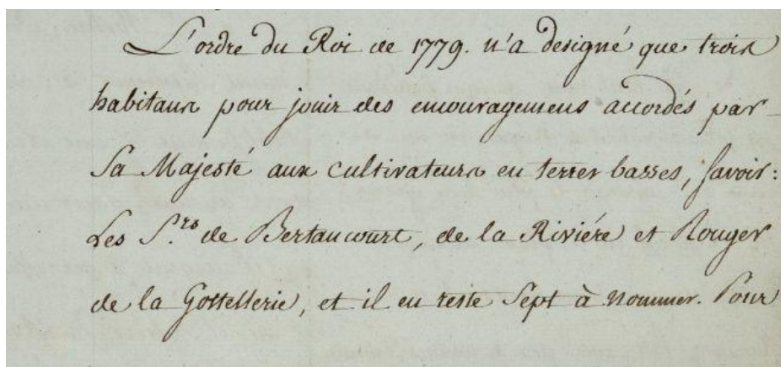 L'ordre du Roi de 1779. n'a designé que trois
habitans pour jouir des encouragemens accordés par
Sa Majesté aux cultivateurs en terres basses, savoir:
Les S.rs de Bertaucourt, de la Riviére et Rouger
de la Gottellerie, et il en reste Sept à nommer. Pour